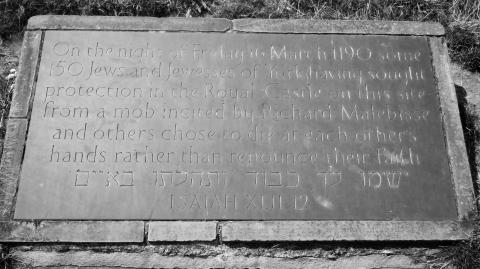 On the night of Friday 16 March 1190 some
150 Jews and Jewesses of York having sought
protection in the Royal Castle on this site
from a mob incited by Richard Malebisse
and others chose to die at each other's
hands rather than renounce their faith
ישימו לה׳ כבוד ותהלתו באיים
ISAIAH XLII 12